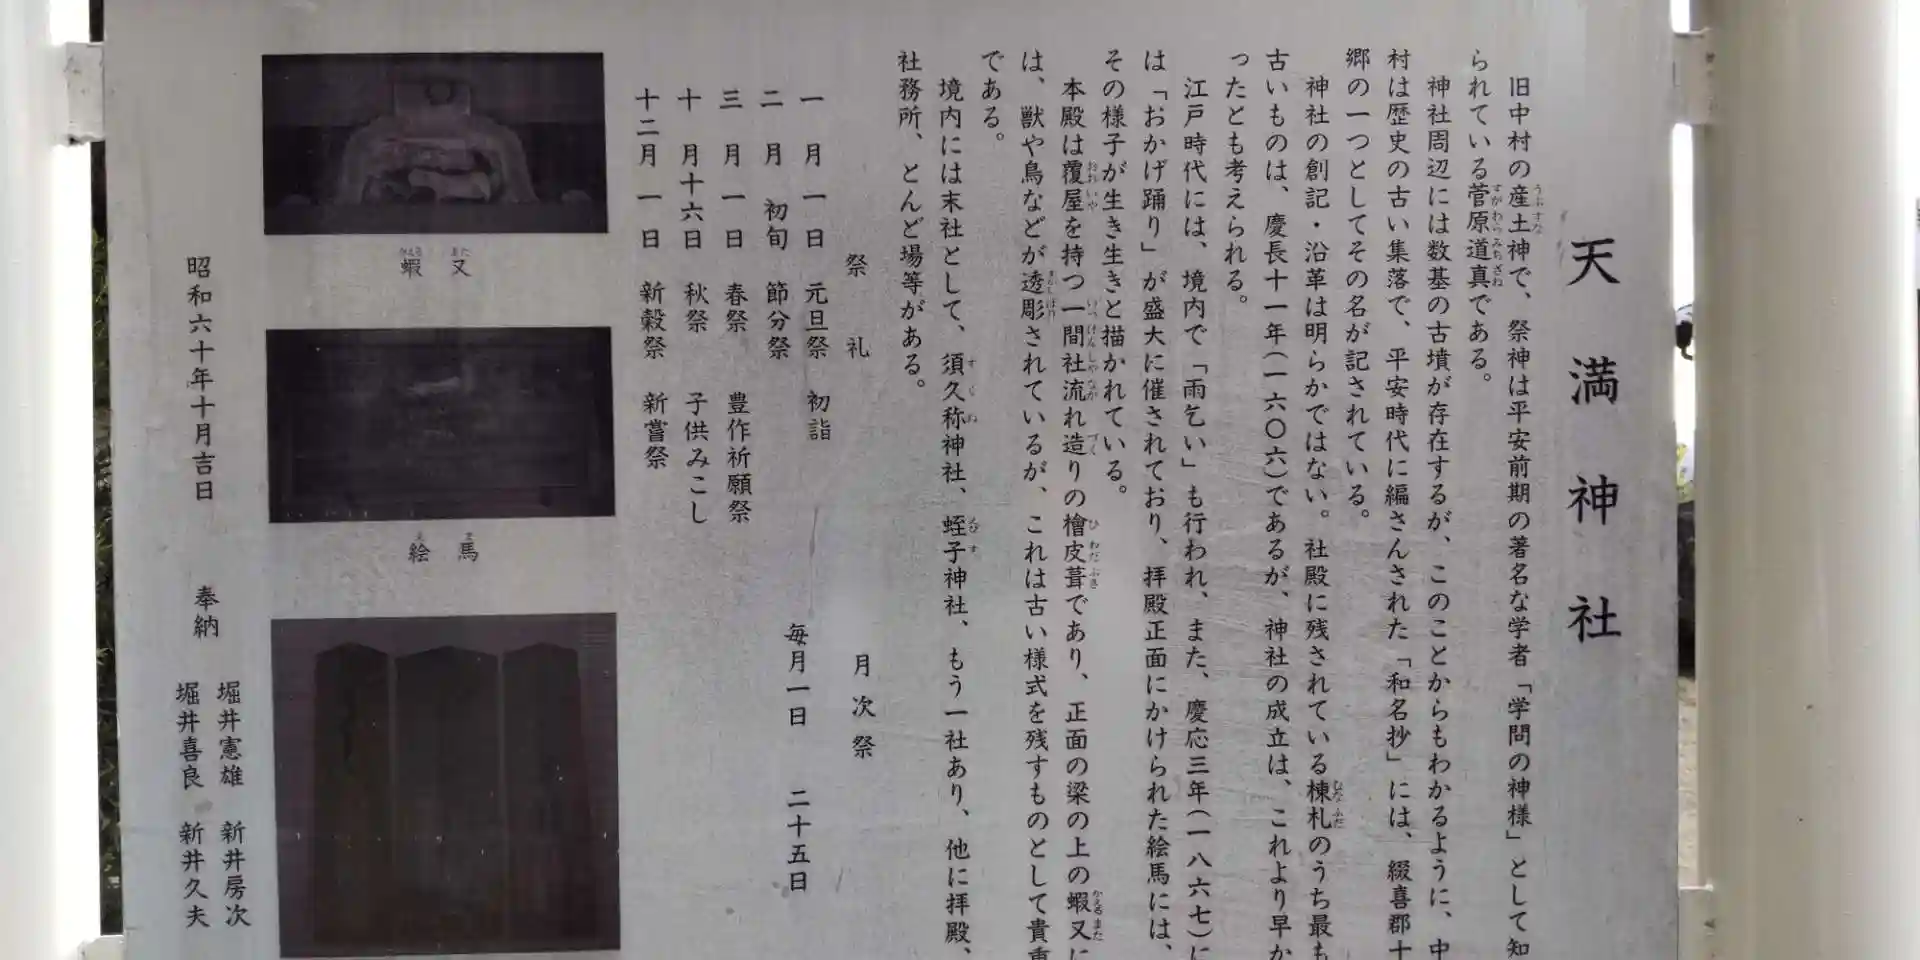 天満神社
旧中村の産土神で、祭神は平安前期の著名な学者「学問の神様」として知
られている菅原道真である。
神社周辺には数基の古墳が存在するが、このことからもわかるように、中
村は歴史の古い集落で、平安時代に編さんされた「和名抄」には、綴喜郡十
郷の一つとしてその名が記されている。
神社の創記・沿革は明らかではない。社殿に残されている棟札のうち最も
古いものは、慶長十一年(一六〇六)であるが、神社の成立は、これより早か
ったとも考えられる。
江戸時代には、境内で「雨乞い」も行われ、また、慶応三年(一八六七)に
は「おかげ踊り」が盛大に催されており、拝殿正面にかけられた絵馬には、
その様子が生き生きと描かれている。
本殿は覆屋を持つ一間社流れ造りの檜皮葺であり、正面の梁の上の蝦又に
は、獣や鳥などが透彫されているが、これは古い様式を残すものとして貴重
である。
境内には末社として、須久称神社、蛭子神社、もう一社あり、他に拝殿、
社務所、とんど場等がある。
祭礼
一月一日 元旦祭 初詣
二月初旬 節分祭
三月一日 春祭 豊作祈願祭
十月十六日 秋祭 子供みこし
十二月一日 新穀祭 新嘗祭
月次祭
毎月一日 二十五日
蝦又
絵馬
昭和六十年十月吉日
奉納
堀井憲雄 新井房次
堀井喜良 新井久夫